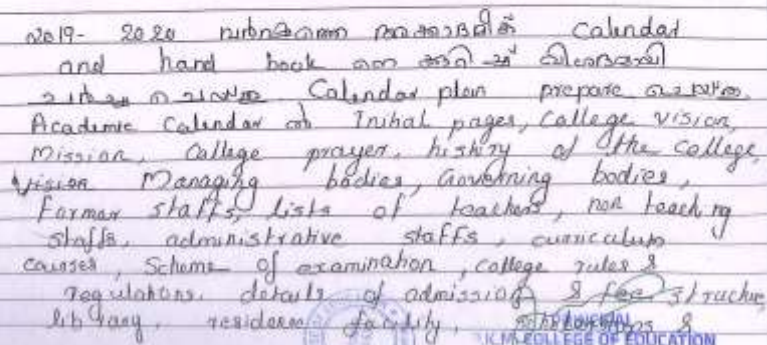 2019-2020 വർഷത്തെ അക്കാദമിക് Calendar
and hand book നെ കുറിച്ച് വിശദമായി
ചർച്ച ചെയ്തു. Calendar plan prepare ചെയ്തു.
Academic Calendar ൽ Initial pages, College vision,
Mission, College prayer, history of the college,
vision Managing bodies, Governing bodies,
Former staffs, lists of teachers, non teaching
staffs, administrative staffs, curriculum
causes, Scheme of examination, college rules &
regulations, details of admission & fee structure,
library, residence facility, scholarships &
COLLEGE OF EDUCATION